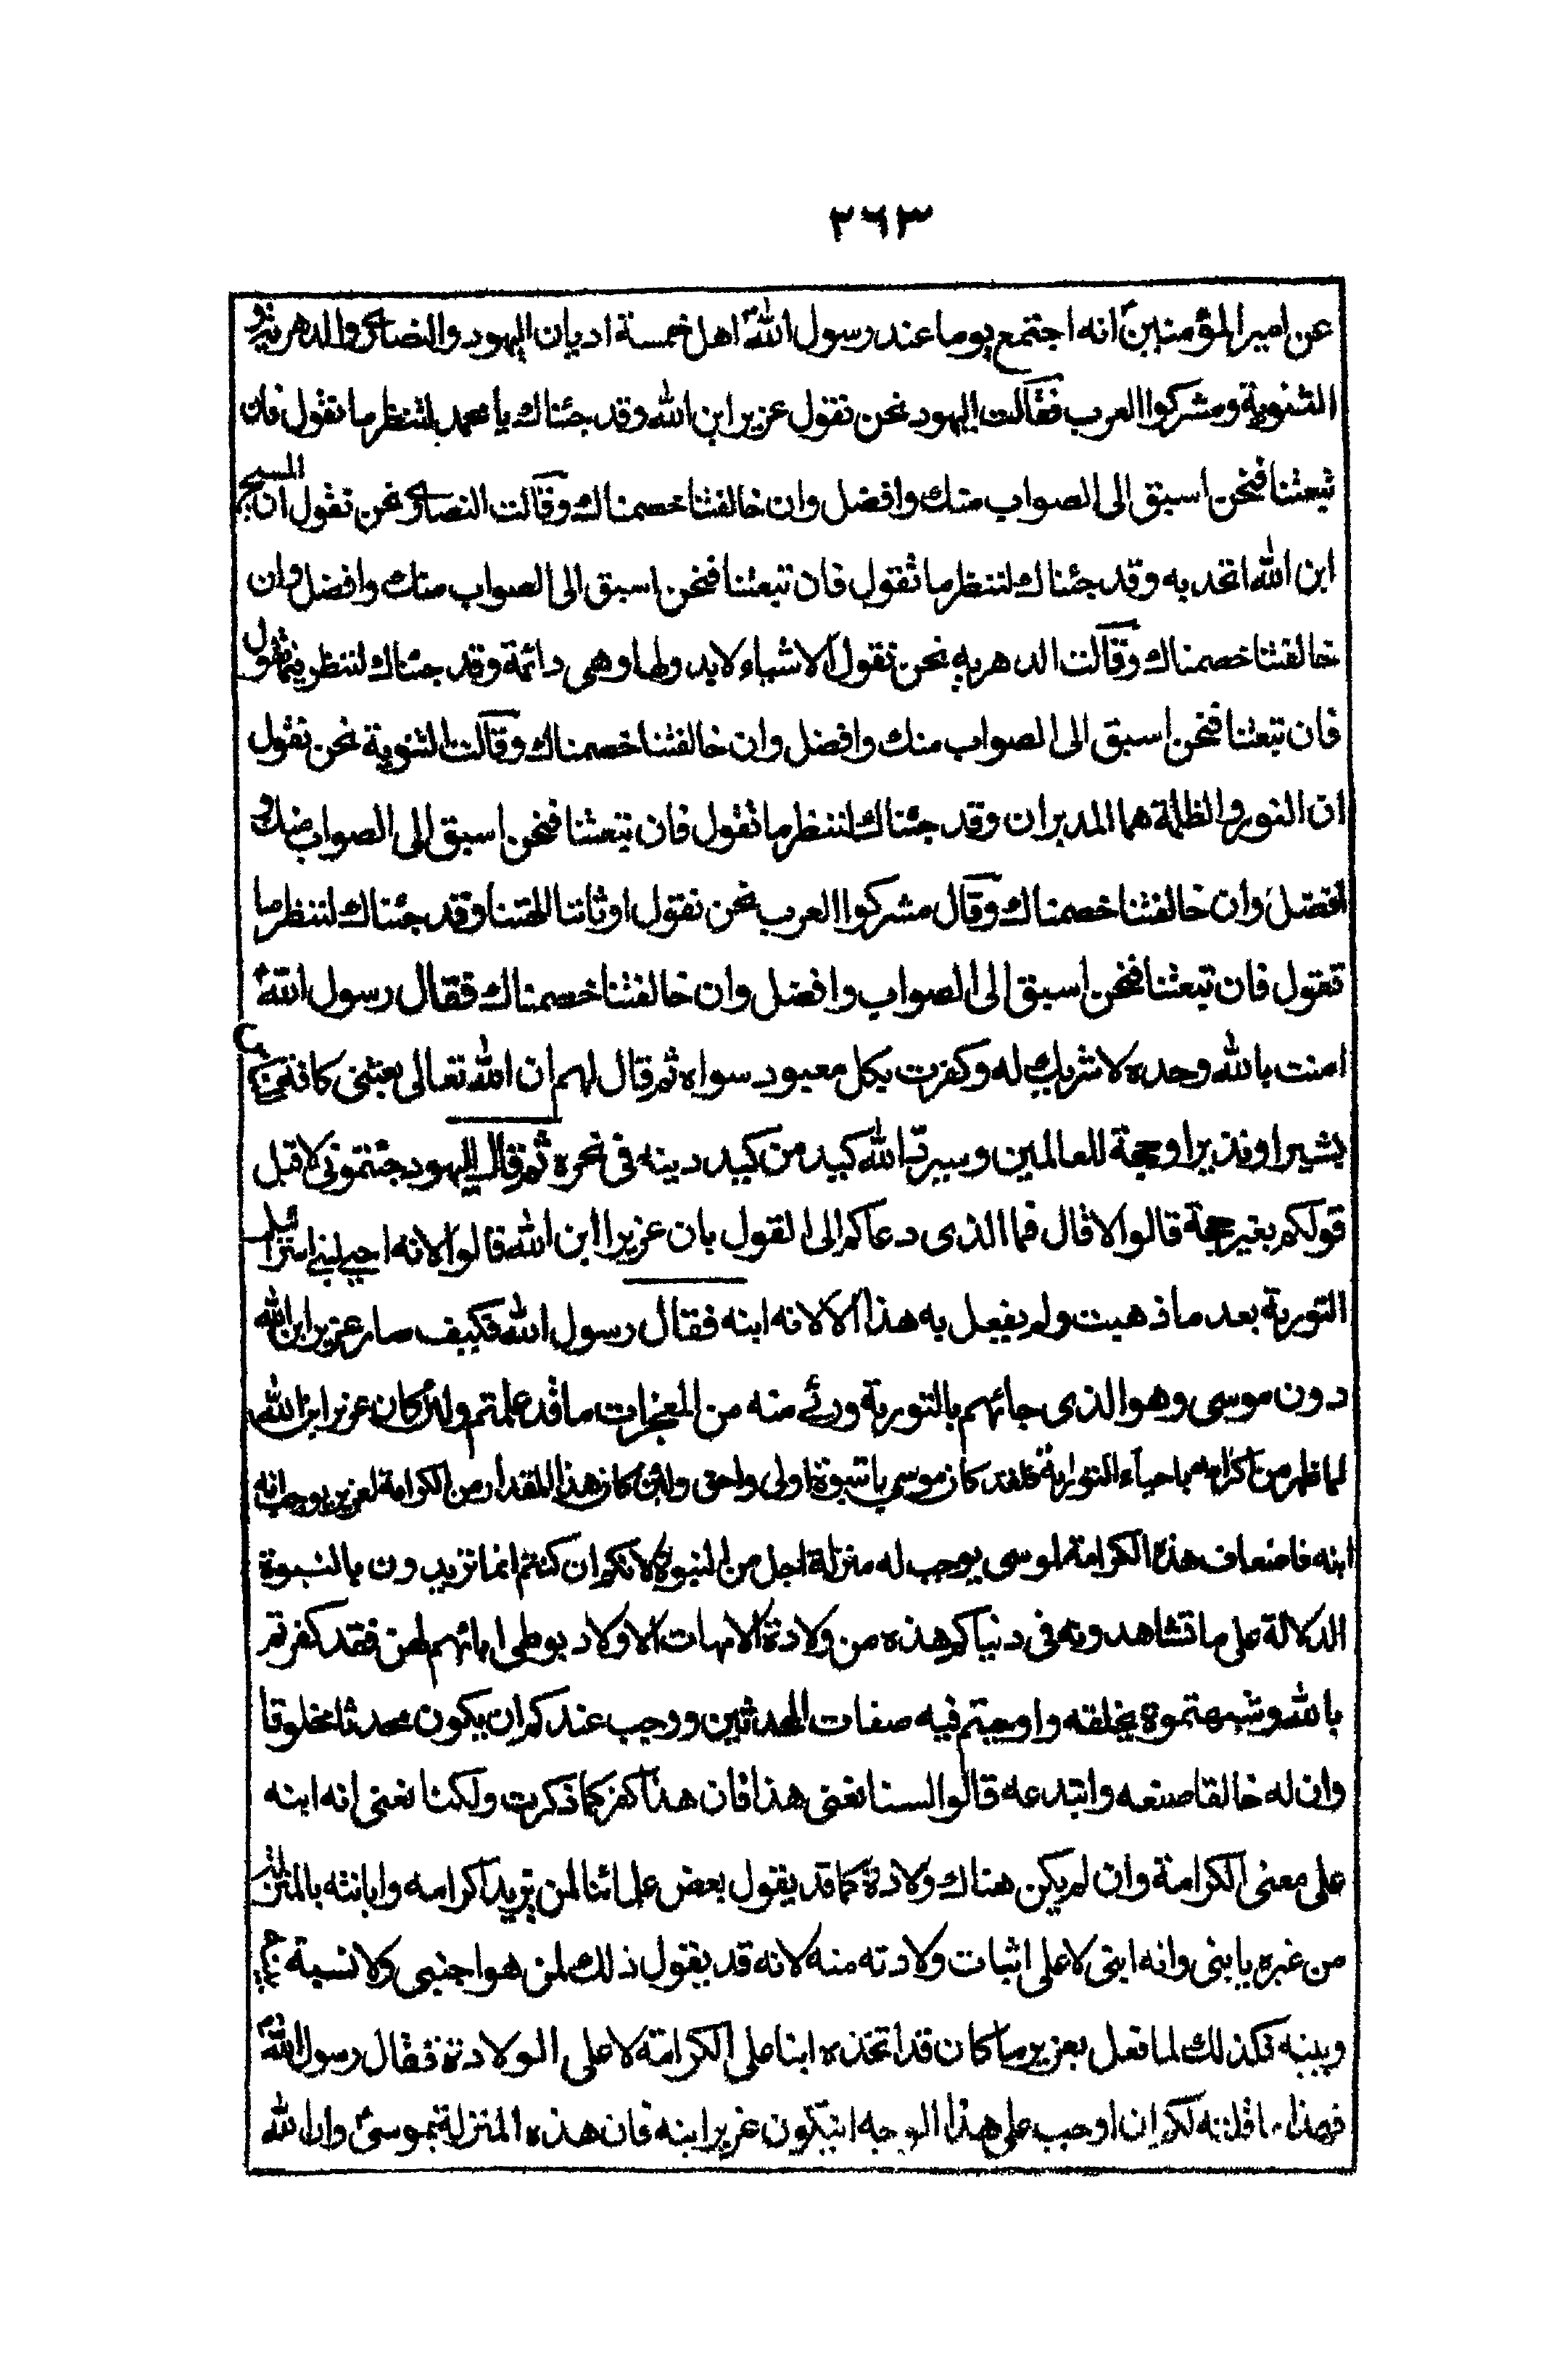 ٣٦٣
عن امير المؤمنين انه اجتمع يوما عند رسول الله اهل خمسة اديان اليهود والنصارى والدهرية و
الثنوية ومشركوا العرب فقالت اليهود نحن نقول عزير ابن الله وقد جئناك يا محمد لننظر ما تقول فان
تبعتنا فنحن اسبق الى الصواب منك وافضل وان خالفتنا خصمناك وقالت النصارى نحن نقول ان المسيح
ابن الله اتحد به وقد جئناك لننظر ما تقول فان تبعتنا فنحن اسبق الى الصواب منك وافضل وان
خالفتنا خصمناك وقالت الدهرية نحن نقول الاشياء لا بدو لها وهى دائمة وقد جئناك لننظر فيما تقول
فان تبعتنا فنحن اسبق الى الصواب منك وافضل وان خالفتنا خصمناك وقالت الثنوية نحن نقول
ان النور والظلمة هما المدبران وقد جئناك لننظر ما تقول فان تبعتنا فنحن اسبق الى الصواب منك و
افضل وان خالفتنا خصمناك وقال مشركوا العرب نحن نقول اوثاننا الهتنا وقد جئناك لننظر ما
تقول فان تبعتنا فنحن اسبق الى الصواب وافضل وان خالفتنا خصمناك فقال رسول الله
امنت بالله وحده لا شريك له وكفرت بكل معبود سواه ثم قال لهم ان الله تعالى بعثنى كافة
بشيرا ونذيرا وحجة للعالمين وسيرد الله كيد من كيد دينه فى نحره ثم قال لليهود جئتمونى لاقبل
قولكم بغير حجة قالوا لا قال فما الذى دعاكم الى القول بان عزيرا ابن الله قالوا لانه احيى لبنى اسرائيل
التورية بعد ما ذهبت ولم يفعل به هذا الا لانه ابنه فقال رسول الله فكيف صار عزير ابن الله
دون موسى وهو الذى جائهم بالتورية ورئى منه من المعجزات ما قد علمتم ولئن كان عزير ابن الله
لما ظهر من اكرامه باحياء التورية فلقد كان موسى بالنبوة اولى واحق ولئن كان هذا المقدار من اكرامة لعزير يوجب انه
ابنه فاضعاف هذه الكرامة لموسى يوجب له منزلة اجل من النبوة لانكم ان كنتم انما تريدون بالنبوة
الدلالة على ما تشاهدونه فى دنياكم هذه من ولادة الامهات الاولاد بوطى ابائهم لهن فقد كفرتم
بالله وشبهتموه بخلقه واوجبتم فيه صفات المحدثين ووجب عندكم ان يكون محدثا مخلوقا
وان له خالقا صنعه وابتدعه قالوا لسنا نعنى هذا فان هذا كفر كما ذكرت ولكنا نعنى انه ابنه
على معنى الكرامة وان لم يكن هناك ولادة كما قد يقول بعض علمائنا لمن يريد اكرامه وابانته بالمنزلة
من غيره يا بنى وانه ابنى لا على اثبات ولادته منه لانه قد يقول ذلك لمن هو اجنبى ولا نسبة
وبينه فكذلك لما فعل بعزير ما كان قد اتخذه ابنا على الكرامة لا على الولادة فقال رسول الله
فهذا ما قلته لكم ان اوجب على هذا الوجه ان يكون عزير ابنه فان هذه المنزلة بموسى وان الله